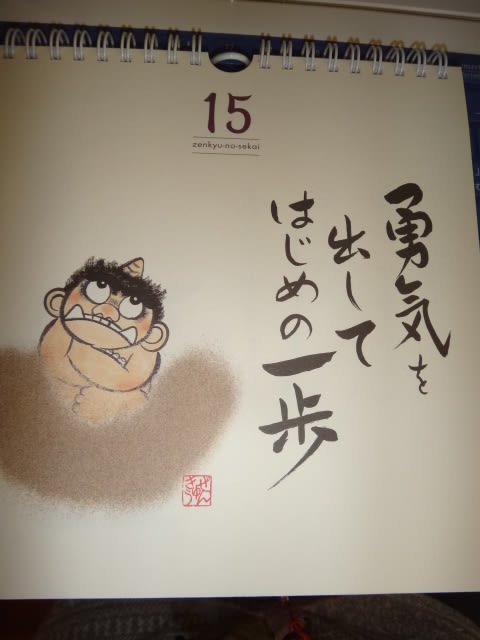 15
zenkyu-no-sekai
勇気を
出して
はじめの
一歩
ぜん
きゅう